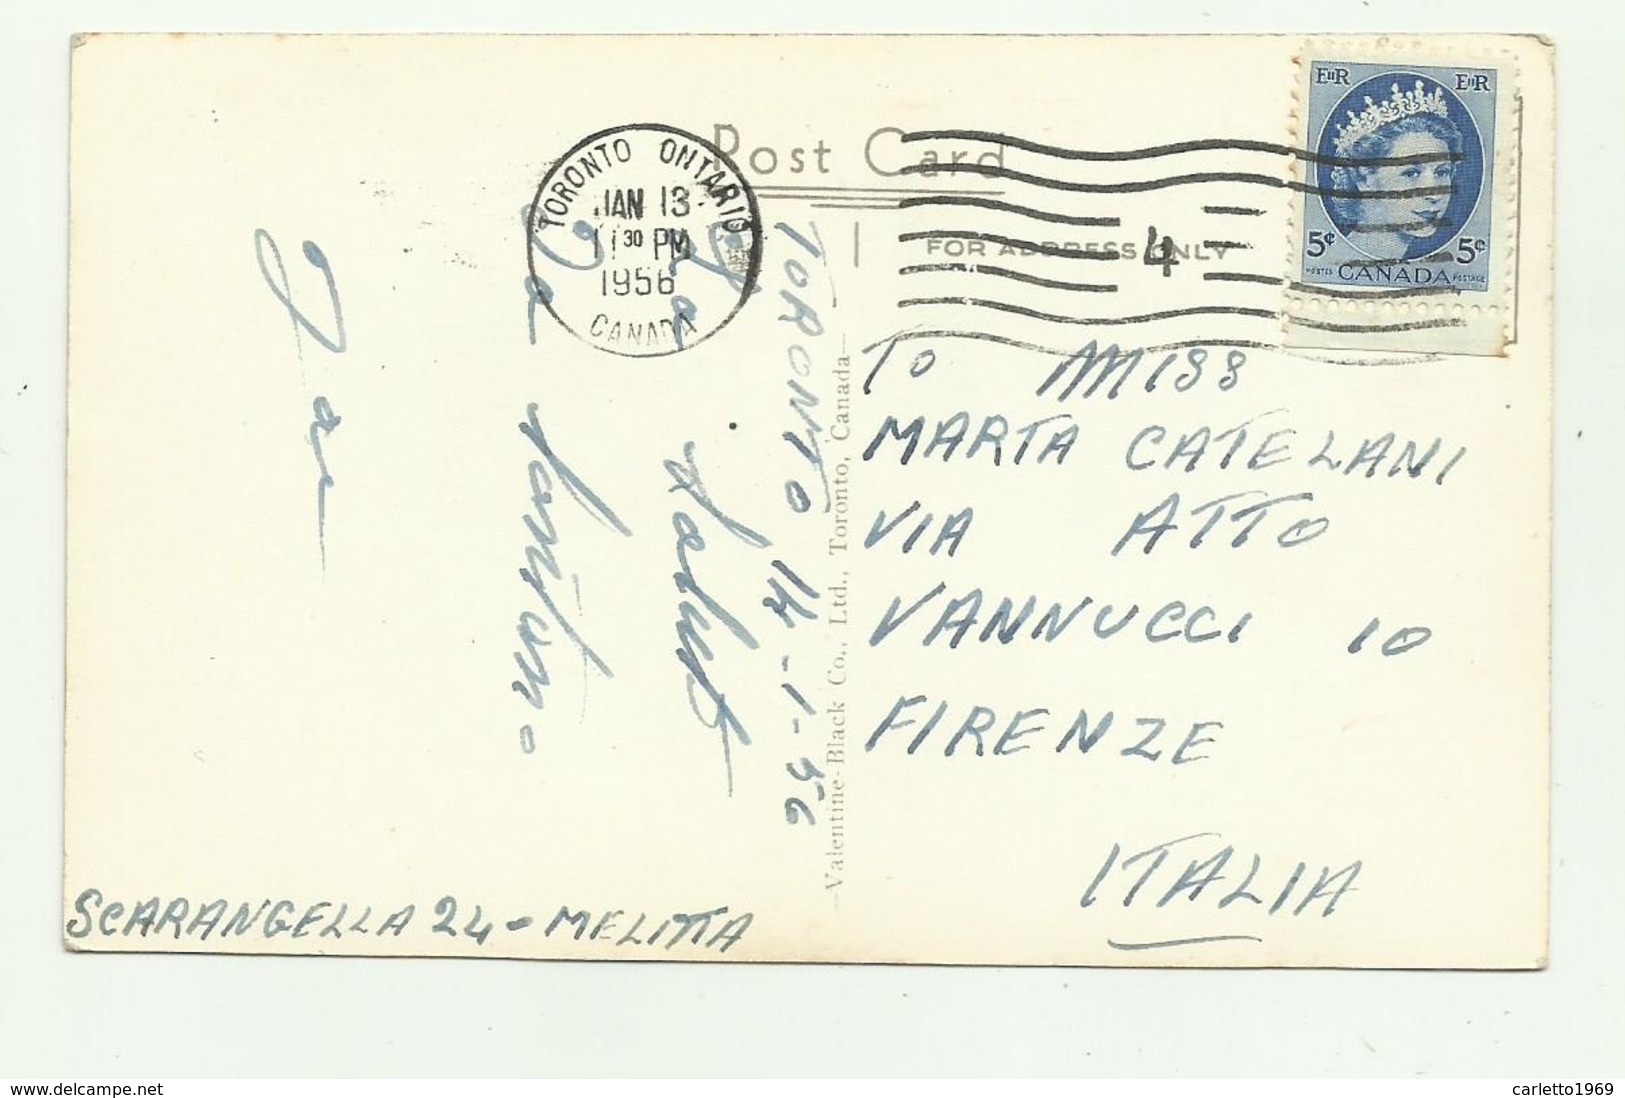 Post Card
FOR ADDRESS ONLY
TORONTO ONTARIO
JAN 13
11 30 PM
1956
CANADA
4
EIIR EIIR
5¢ 5¢
POSTES CANADA POSTAGE
TORONTO 14-1-56
To MISS
MARTA CATELANI
VIA ATTO
VANNUCCI 10
FIRENZE
ITALIA
SCARANGELLA 24 - MELITTA
—Valentine-Black Co., Ltd., Toronto, Canada—
carletto1969
www.delcampe.net